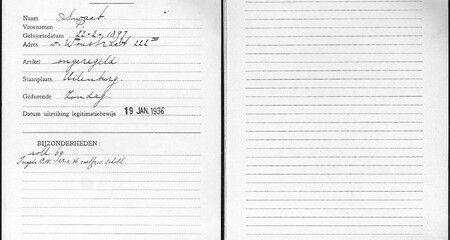 Naam Swaab
Voornamen
Geboortedatum 22-2-1897
Adres v. Woustraat 222 III
Artikel ongeregeld
Staanplaats Uilenburg.
Gedurende Zondag.
Datum uitreiking legitimatiebewijs 19 JAN. 1936
BIJZONDERHEDEN:
soll. 69